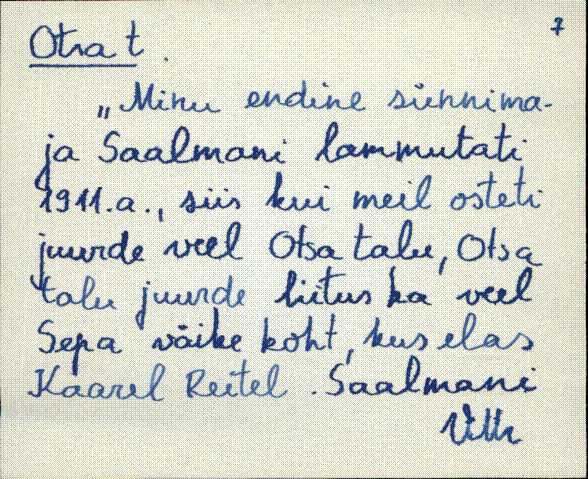 7
Otsa t.
„Minu endine sünnima-
ja Saalmani lammutati
1911.a., siis kui meil osteti
juurde veel Otsa talu, Otsa
talu juurde liitus ka veel
Sepa väike koht, kus elas
Kaarel Reitel. Saalmani